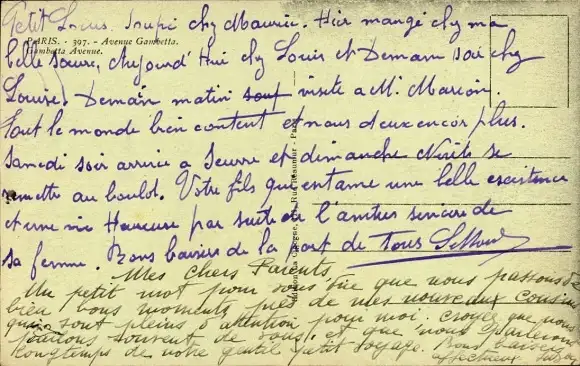 Petit Louis. Soupé chez Maurice. Hier mangé chez ma
PARIS. - 397. - Avenue Gambetta.
Gambetta Avenue.
belle sœur, aujourd'hui chez Louis et Demain soir chez
Louise. Demain matin visite a M. Marion.
Tout le monde bien content et nous deux encor plus.
Samedi soir arrivée a Seurre et dimanche se
remettre au boulot. Votre fils qui entame une belle existence
et une vie Heureuse par suite de l'amitié de
sa femme. Bons baisers de la part de Tous
Mes chers Parents
Un petit mot pour vous dire que nous passons de
bien bons moments près de mes nouveaux cousins
qui sont pleins d'attention pour moi. croyez que nous
parlons souvent de vous, et que nous parlerons
longtemps de notre gentil petit voyage. Bons baisers
affectueux